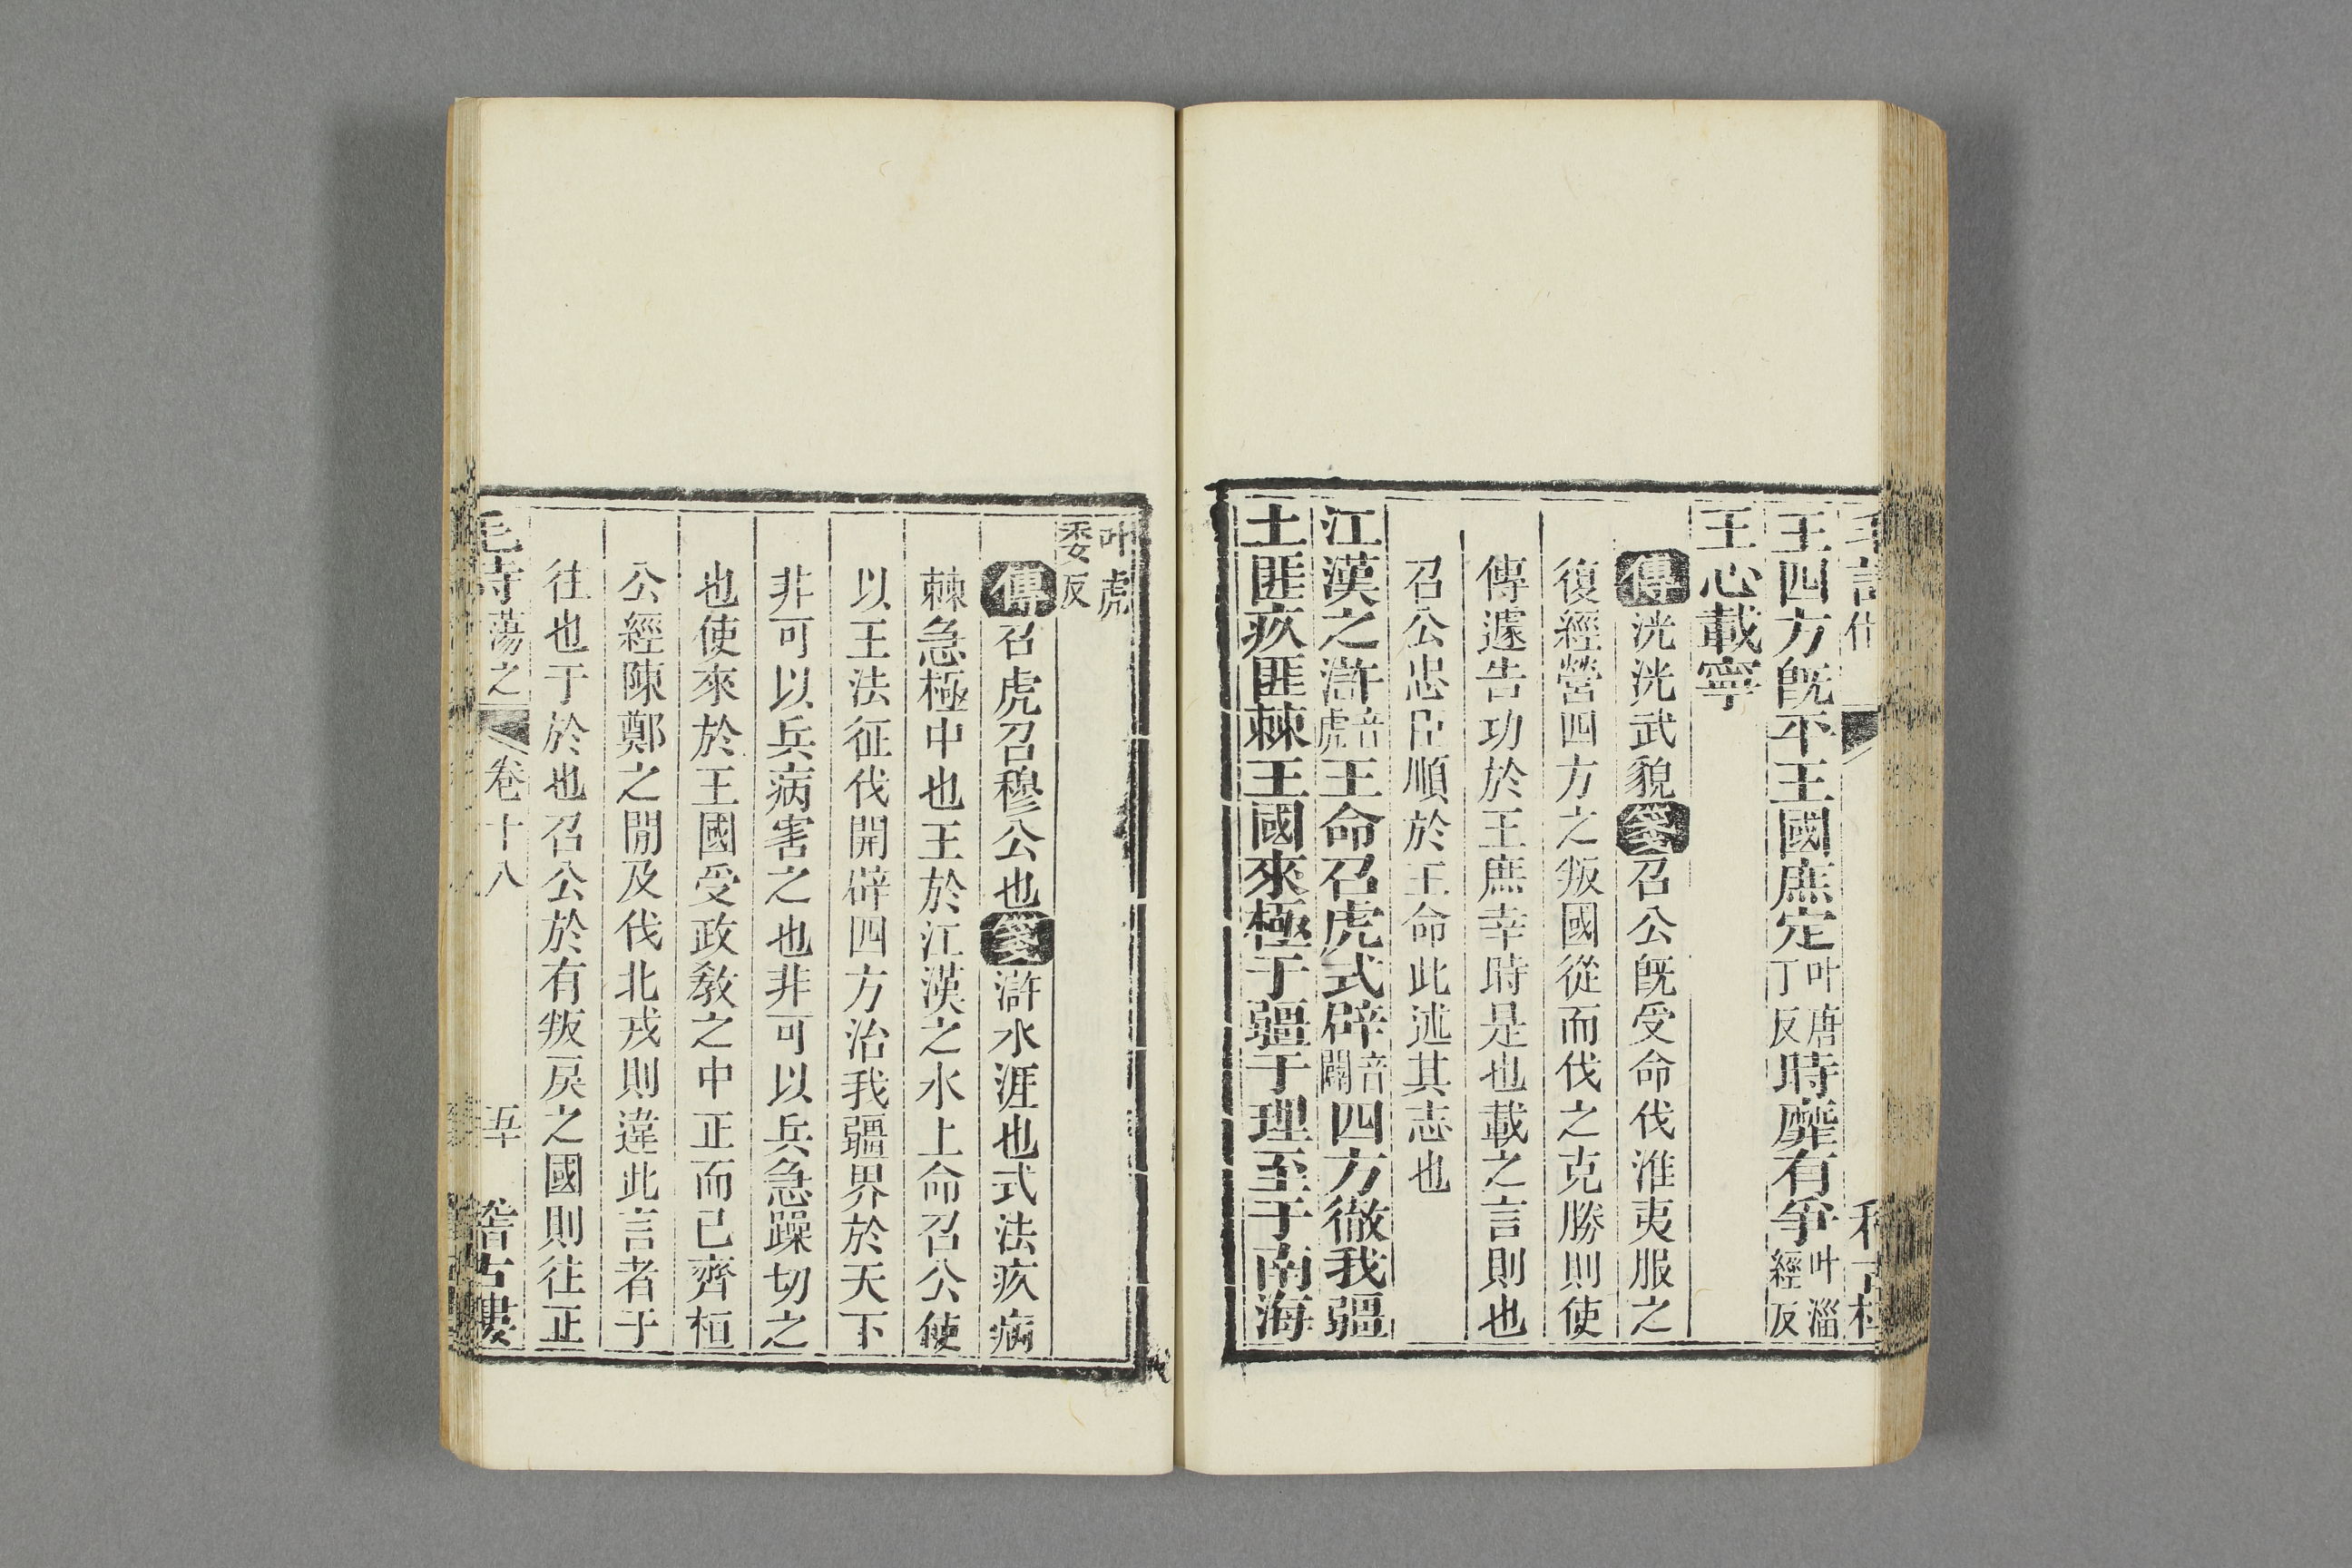 王四方旣平王國庶定叶唐丁反時靡有爭叶淄經反
王心載寧
傳洸洸武貌箋召公旣受命伐淮夷服之
復經營四方之叛國從而伐之克勝則使
傳遽告功於王庶幸時是也載之言則也
召公忠臣順於王命此述其志也
江漢之滸音虎王命召虎式辟音闢四方徹我疆
土匪疚匪棘王國來極于疆于理至于南海
叶虎委反
傳召虎召穆公也箋滸水涯也式法疚病
棘急極中也王於江漢之水上命召公使
以王法征伐開辟四方治我疆界於天下
非可以兵病害之也非可以兵急躁切之
也使來於王國受政教之中正而已齊桓
公經陳鄭之閒及伐北戎則違此言者于
往也于於也召公於有叛戾之國則往正
毛詩蕩之 卷十八 五 稽古樓